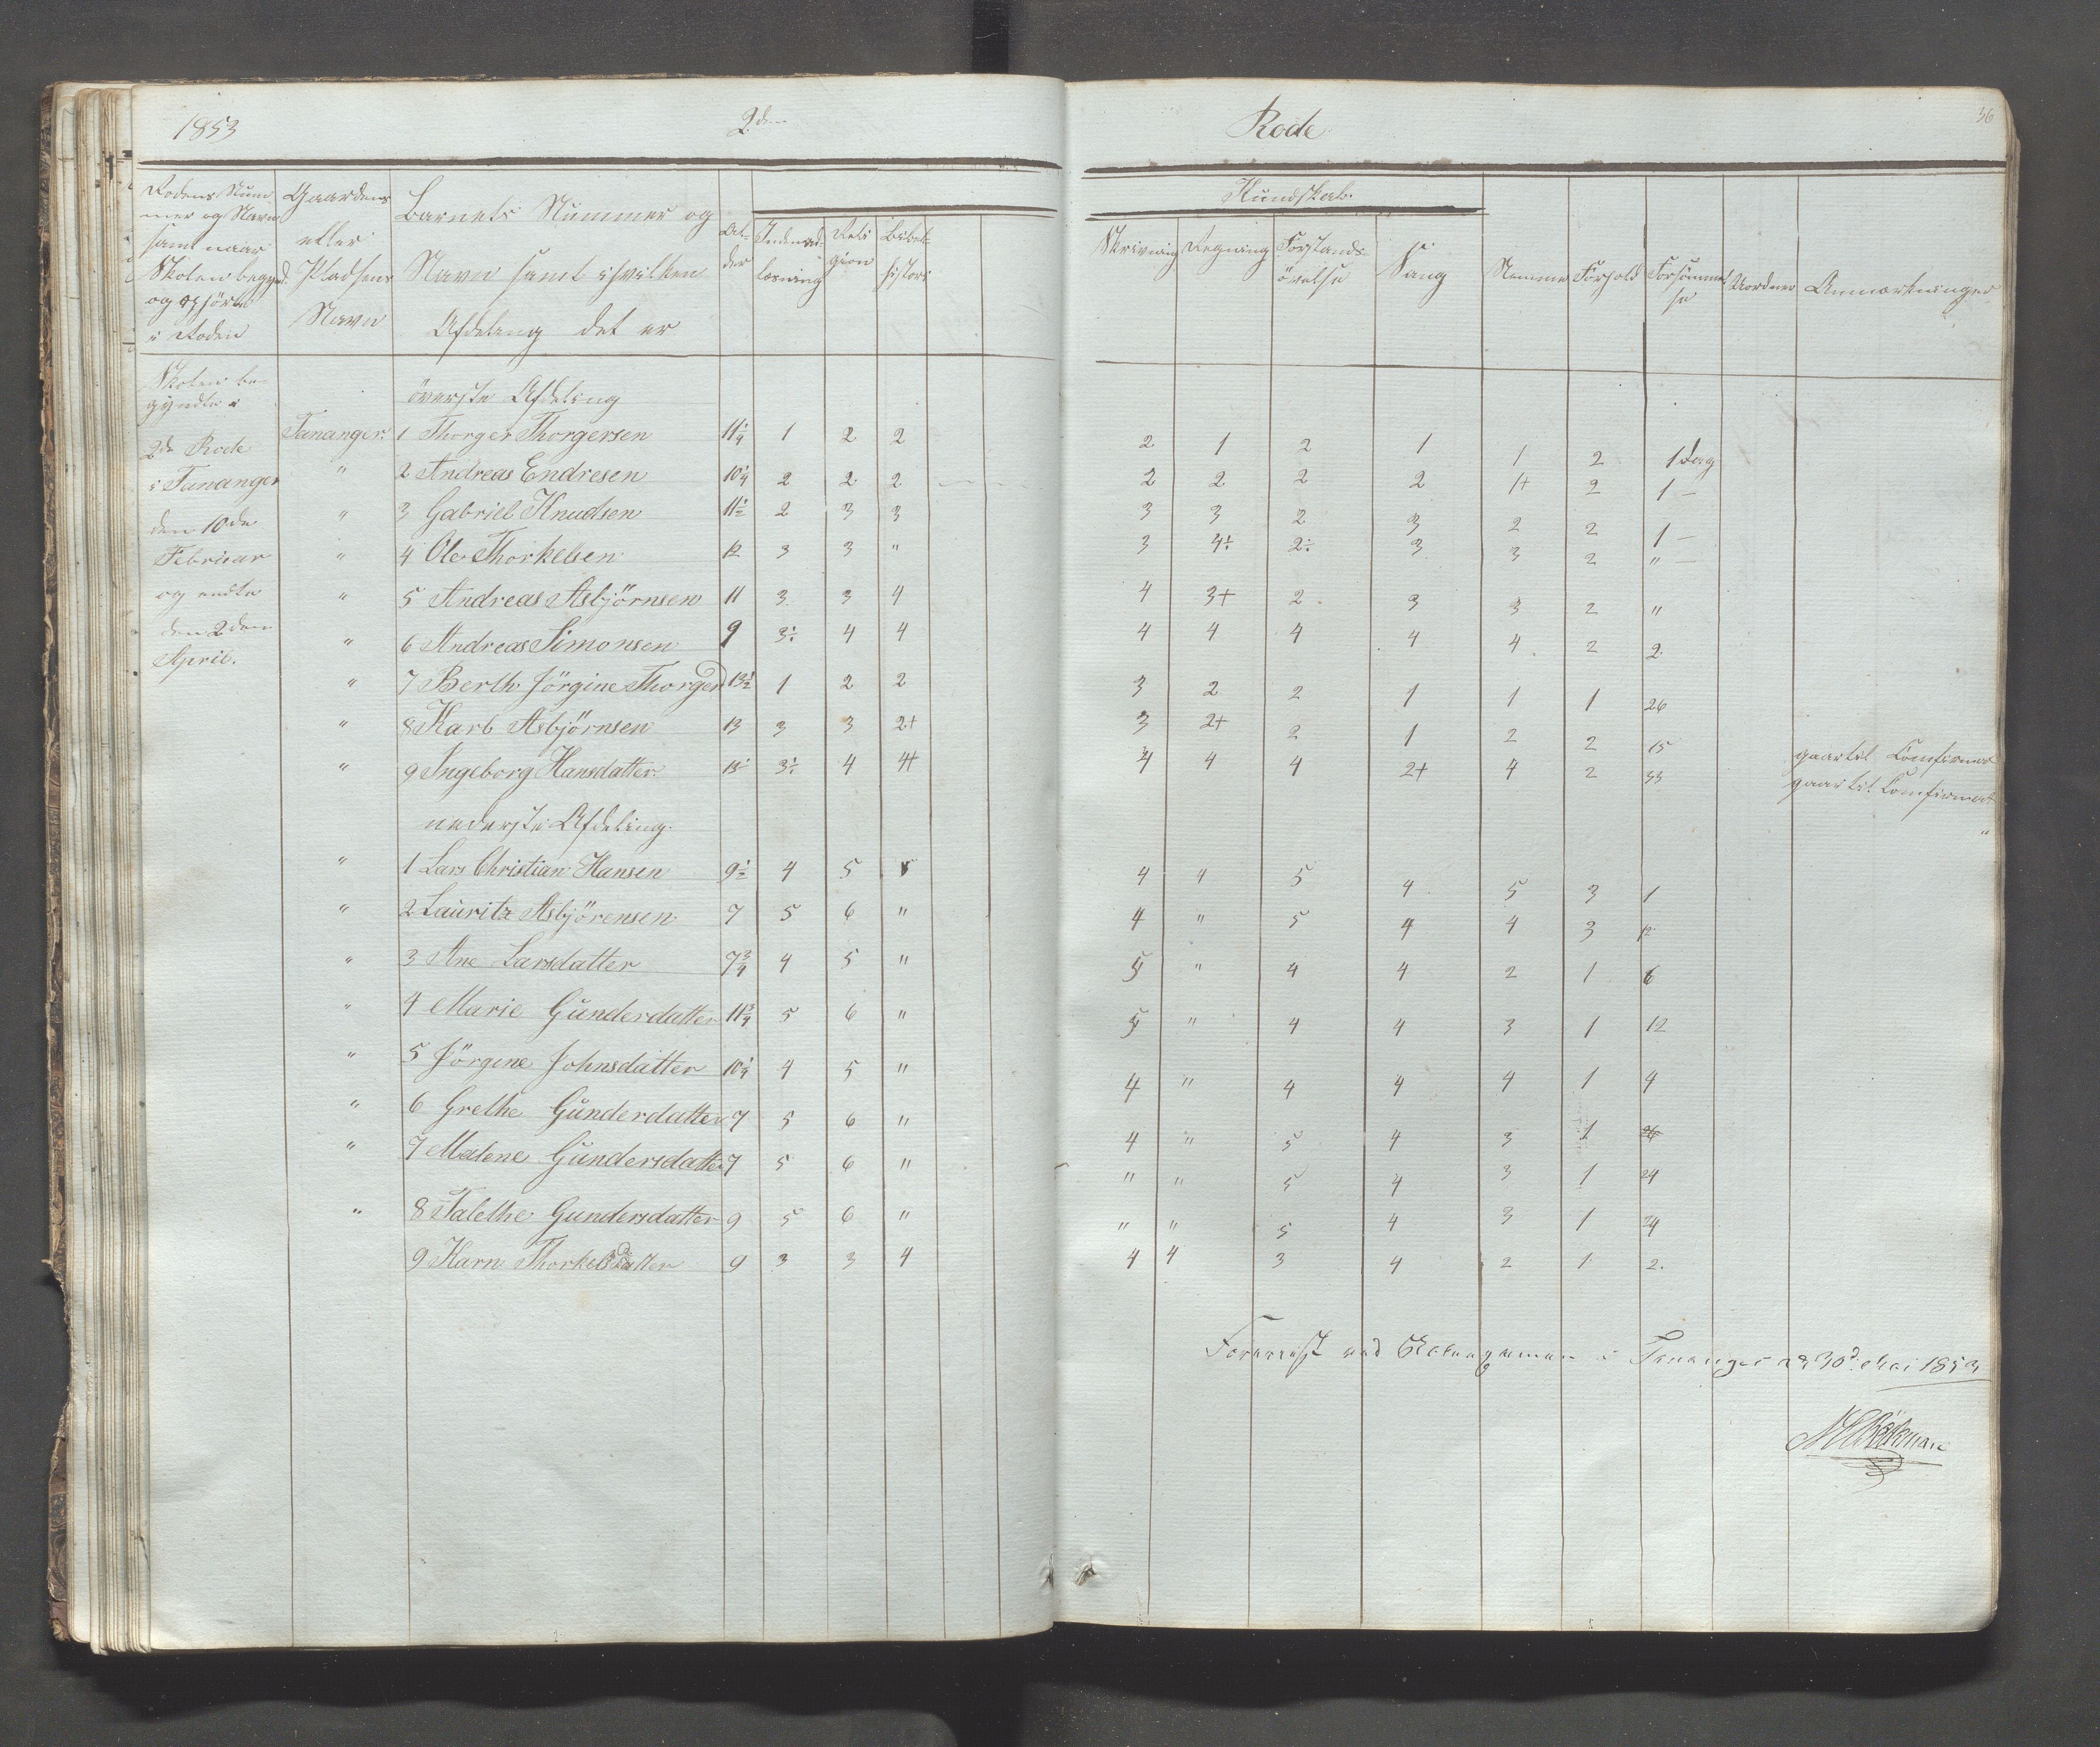 1853 2den Rode 36
Rodens Num-
mer og Navn
samt naar
Skolen begynd.
og ophörte
i Roden
Gaardens
eller
Pladsens
Navn
Barnets Nummer og
Navn samt ihvilken
Afdeling det er
Al-
der
Indenad-
læsning
Reli
gion
Bibel-
histori
Kundskab.
Skrivning
Regning
Forstands-
övelse
Sang
Nemme
Forhold
Forsömmel
se
Uorden
Anmærkninger
Skolen be-
gyndte i
2de Rode
i Tananger
den 10de
Februar
og endte
den 2den
April.
överste Afdeling
Tananger. 1 Thorger Thorgersen 11 1/4 1 2 2 2 1 2 1 1 2 1 Dag
" 2 Andreas Endresen 10 1/4 2 2 2 2 2 2 2 1+ 2 1 —
" 3 Gabriel Knudsen 11 1/2 2 3 3 3 3 2 3 2 2 1 —
" 4 Ole Thorkelsen 12 3 3 " 3 4÷ 2÷ 3 3 2 " —
" 5 Andreas Asbjörnsen 11 3 3 4 4 3+ 2 3 3 2 "
" 6 Andreas Simonsen 9 3÷ 4 4 4 4 4 4 4 2 2
" 7 Berth. Jörgine Thorgerd 13 1/2 1 2 2 3 2 2 1 1 1 26
" 8 Karb Asbjörnsen 13 3 3 2+ 3 2+ 2 1 2 2 15 gaar til Comfirmat
" 9 Ingeborg Hansdatter 3÷ 4 4+ 4 4 4 2+ 4 2 33 gaar til Comfirmat
nederste Afdeling. "
" 1 Lars Christian Hansen 9 1/2 4 5 5 4 " 5 4 5 3 1
" 2 Lauritz Asbjörensen 7 5 6 " 4 " 5 4 4 3 12
" 3 Ane Larsdatter 7 3/4 4 5 " 5 " 4 4 2 1 6
" 4 Marie Gunderdatter 11 3/4 5 6 " 5 " 4 4 3 1 12
" 5 Jörgine Johnsdatter 10 1/4 4 5 " 4 " 4 4 4 1 4
" 6 Grethe Gunderdatter 7 5 6 " 4 " 5 4 3 1 26
" 7 Malene Gundersdatter 7 5 6 " " " 5 4 3 1 24
" 8 Talethe Gundersdatter 9 5 6 " " " 5 4 3 1 24
9 Karn Thorkelsdatter 9 3 3 4 4 4 3 4 2 1 2.
Foreviist ved Examen i Tananger d 30d. Mai 1853